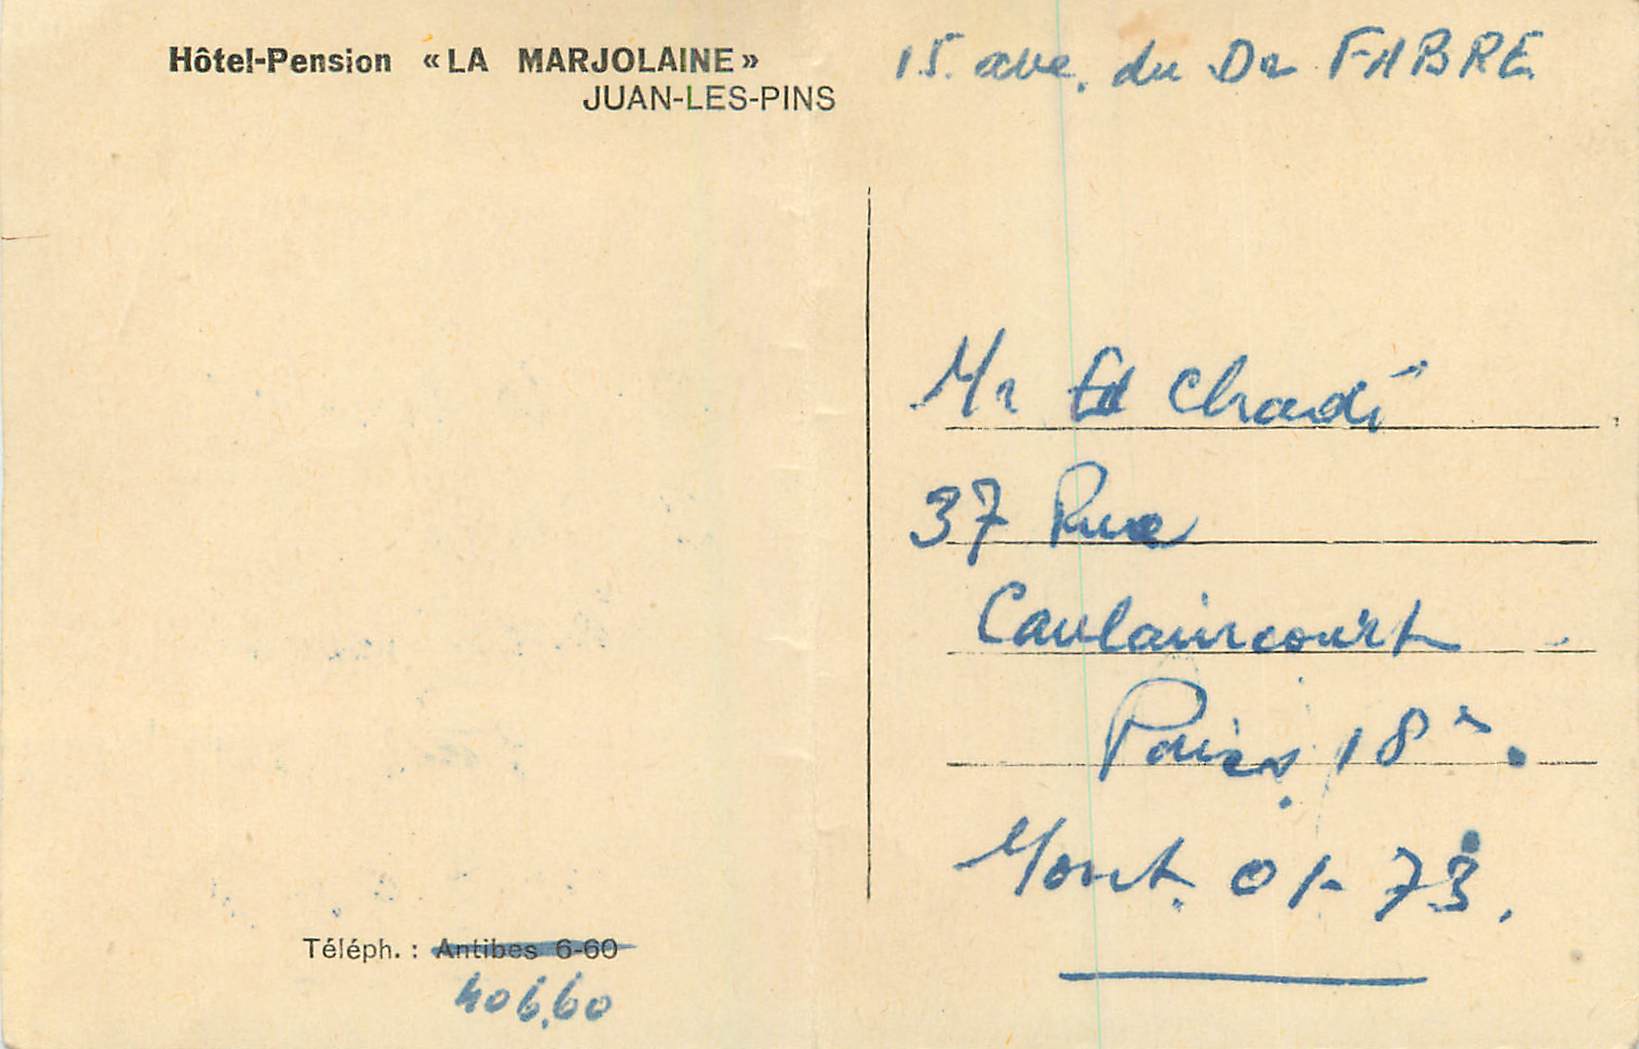 Hôtel-Pension «LA MARJOLAINE»
JUAN-LES-PINS
15. ave. du Dr FABRE
Mr Ed
37 Rue
Caulaincourt
Paris 18e.
Mont. 01-73.
Téléph. : Antibes 6-60
406.60